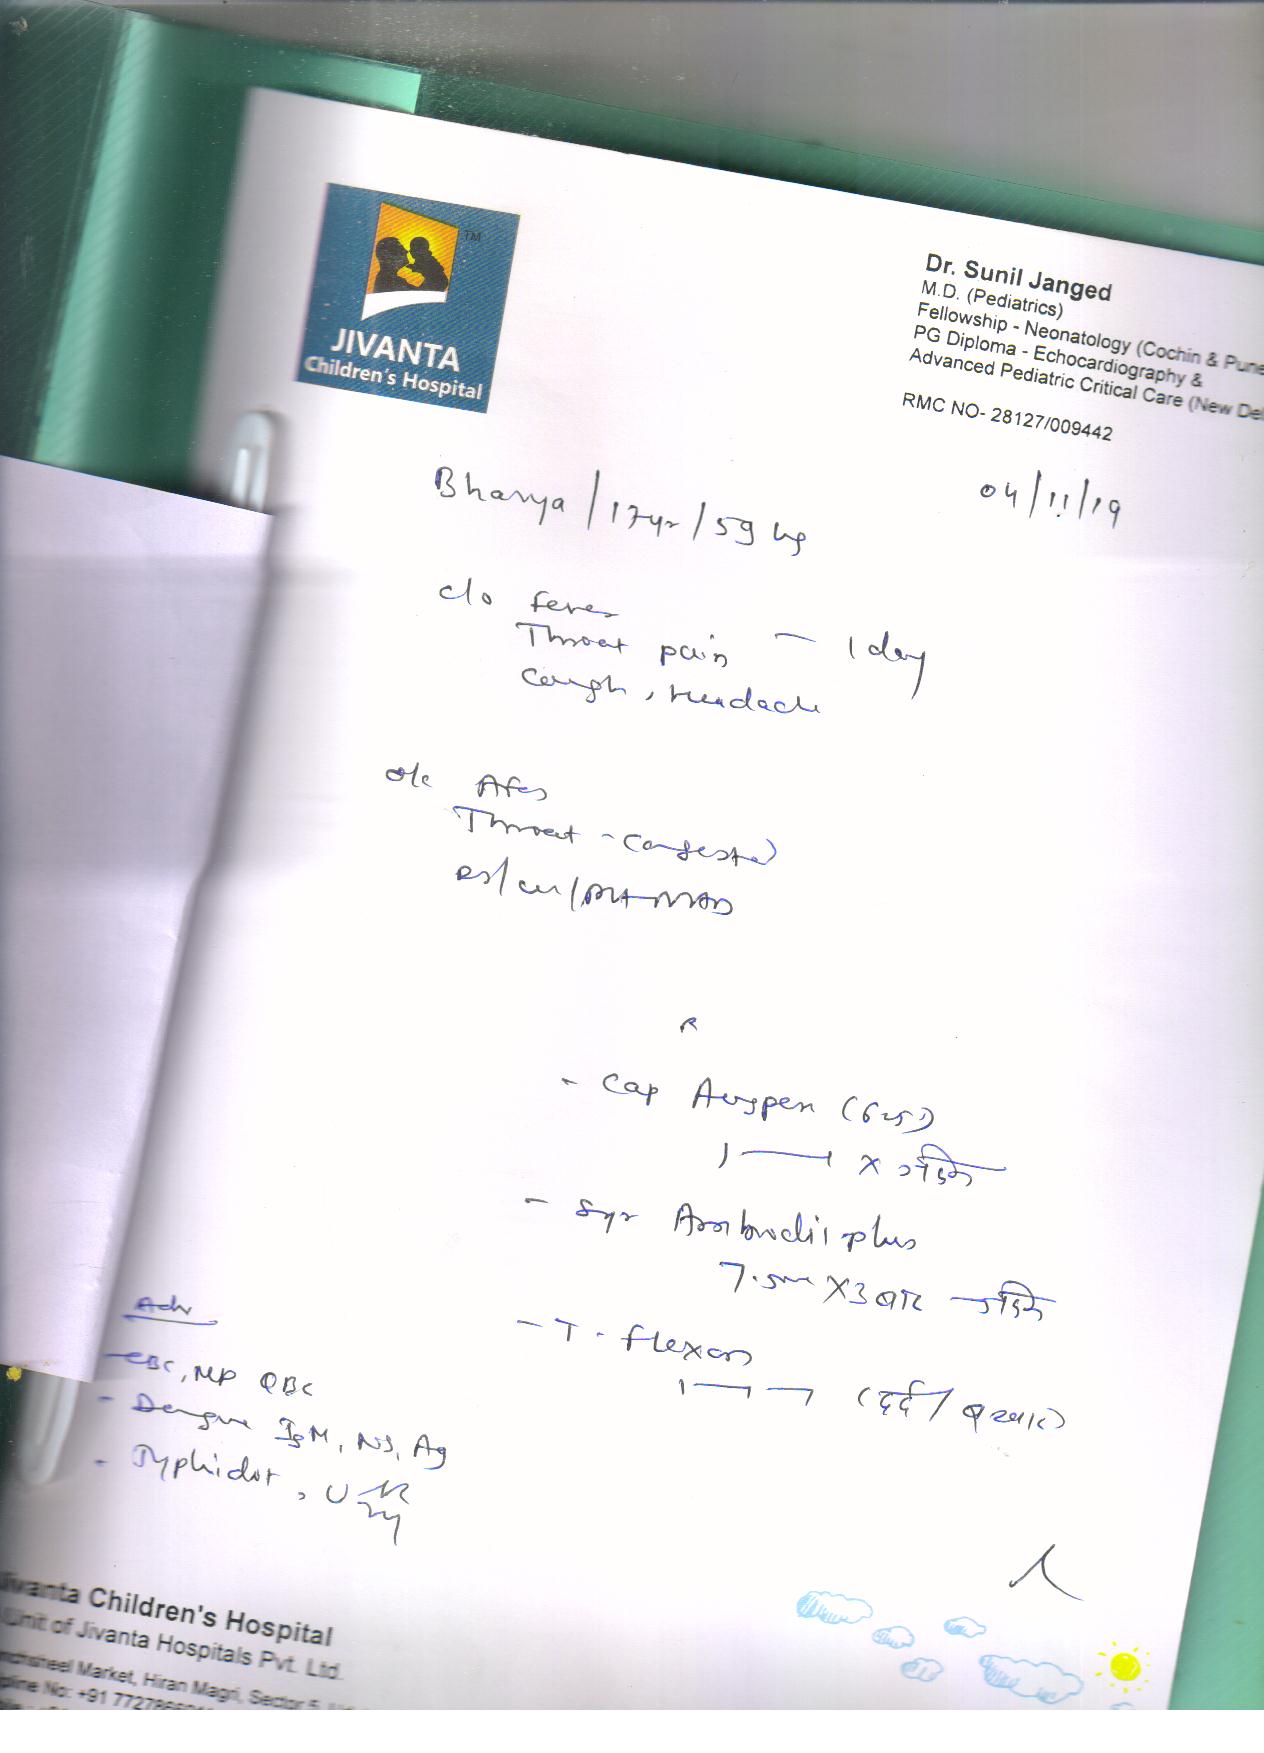 TM
JIVANTA
Children's Hospital
Dr. Sunil Janged
M.D. (Pediatrics)
Fellowship - Neonatology (Cochin & Pune
PG Diploma - Echocardiography &
Advanced Pediatric Critical Care (New Del
RMC NO- 28127/009442
04/11/19
Bhavya / 17yr / 59 kg
c/o fever
Throat pain — 1 day
Cough, Headache
o/e Afeb
Throat - congested
RS/CVS/P/A-NAD
R
- Cap Augpen (625)
1 —— 1 x
- Syr Ambrodil plus
7.5ml X 3 बार
- T. flexon
1 — 1 — 1 (दर्द / बुखार)
Adv
- CBC, MP QBC
- Dengue IgM, NS, Ag
- Typhidot, U
Jivanta Children's Hospital
Unit of Jivanta Hospitals Pvt. Ltd.
Market, Hiran Magri, Sector 5,
pline No: +91